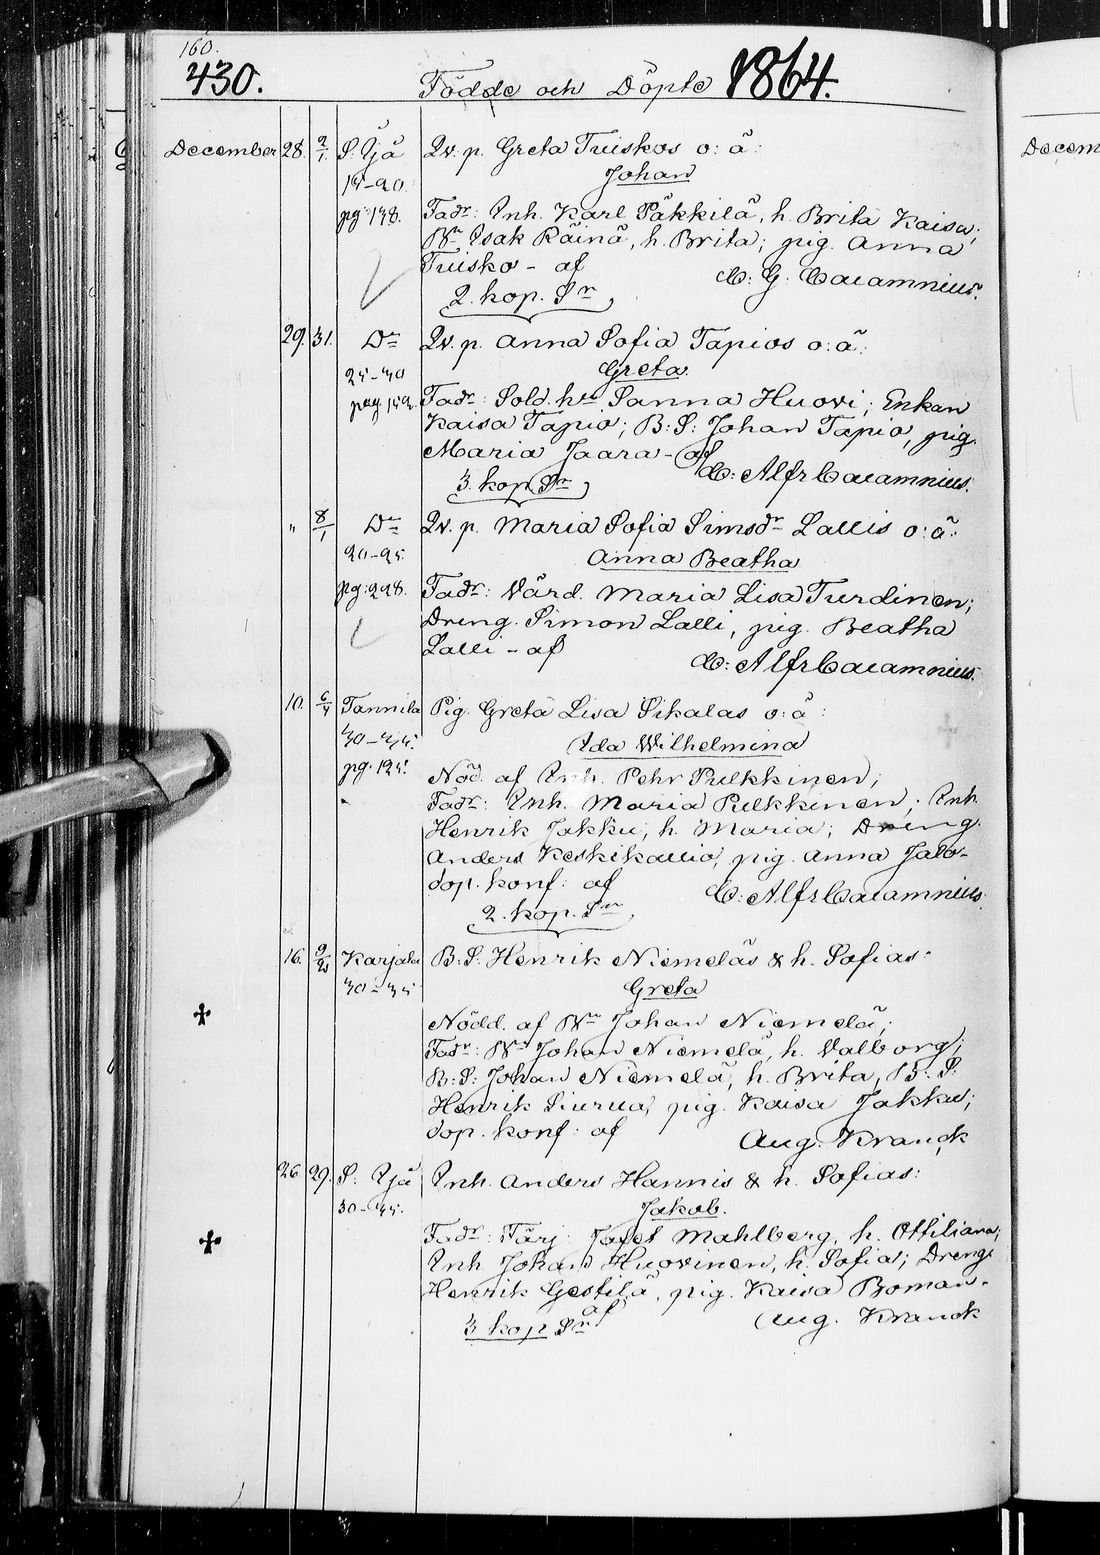 160.
430. Födde och Döpte 1864.
December 28. 2/1. S. Ijå Qv. p. Greta Tuiskos o: ä:
15-20. Johan
pg: 138. Fadr: Inh. Karl Päkkilä, h. Brita Kaisa;
Bn Isak Räinä, h. Brita; pig. Anna
Tuisko - af C. G. Calamnius.
2. kop. Sr
29. 31. Do Qv. p. Anna Sofia Tapios o: ä:
25-30 Greta.
pag. 152. Fadr: Sold. hu Sanna Huovi; Enkan
Kaisa Tapio; B: S: Johan Tapio, pig.
Maria Jaara - af C: Alfr Calamnius.
3. kop. Sr
" 8/1 Do Qv. p. Maria Sofia Simsdr Lallis o: ä:
20-25. Anna Beatha
pg: 298. Fadr: Värd. Maria Lisa Turdinen;
Dreng. Simon Lalli, pig. Beatha
Lalli - af C: Alfr Calamnius.
10. 6/4 Tannila Pig. Greta Lisa Sikalas o: ä:
30-35. Ida Wilhelmina
pg. 125. Nöd. af Inh. Pehr Pulkkinen;
Fadr: Inh. Maria Pulkkinen; Inh.
Henrik Jakku, h. Maria; Dreng.
Anders Keskikallio, pig. Anna Jalo-
dop. konf: af C: Alfr Calamnius
2. kop. Sr
16. Karjala B: S. Henrik Niemeläs & h. Sofias:
30-35 Greta
Nödd. af Bn Johan Niemelä;
Fadr: Bn Johan Niemelä, h. Valborg;
B: S: Johan Niemelä, h. Brita, B: S:
Henrik Siurua, pig. Kaisa Jakku;
dop. konf: af Aug. Kranck
26. 29. S. Ijå Inh. Anders Hannis & h. Sofias:
30-35. Jakob.
Fadr: Färj. Jafet Mahlberg, h. Ottiliana;
Inh Johan Huovinen, h. Sofia; Dreng
Henrik Gestilä, pig. Kaisa Boman.
af Aug. Kranck
3 kop Sr
Decem